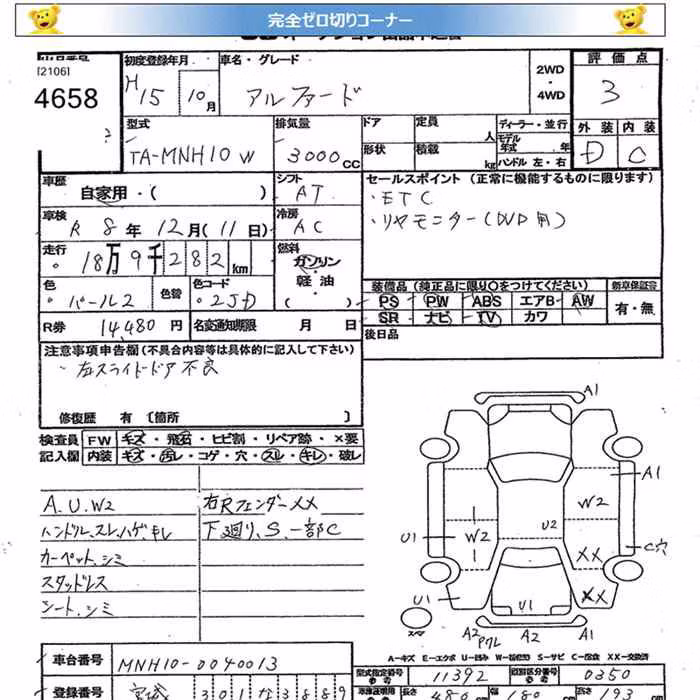 完全ゼロ切りコーナー
[2106]
4658
初度登録年月
H15 10月
車名・グレード
アルファード
2WD
・
4WD
評価点
3
外装 内装
D C
型式
TA-MNH10W
排気量
3000CC
ドア
形状
定員 人
積載 kg
ディーラー・並行
モデル年式 年
ハンドル 左・右
車歴
自家用・( )
シフト
AT
セールスポイント (正常に機能するものに限ります)
・ETC
・リヤモニター(DVD用)
車検
R 8年 12月(11日)
冷房
AC
走行
18万9千282km
燃料
ガソリン
・
軽油
( )
色
パール2
色替
色コード
2JD
装備品(純正品に限り〇をつけてください)
PS PW ABS エアB AW
SR ナビ TV カワ
新車保証書
有・無
R券 14,480円
名変通知期限 月 日
後日品
注意事項申告欄(不具合内容等は具体的に記入して下さい)
・左スライドドア不良
修復歴 有〔箇所 〕
検査員記入欄
FW キズ・飛石・ヒビ割・リペア跡・×要
内装 キズ・汚レ・コゲ・穴・スレ・キレ・破レ
A.U.W2
ハンドル.スレ.ハゲ.キレ
カーペット.シミ
スタッドレス
シート.シミ
右Rフェンダー××
下廻り.S.一部C
A1
A1
W2
U2
U1
W2
C穴
××
××
U1
U1
スペア
A2
Pクレ
A2
A1
A-キズ E-エクボ U-凹み W-板修跡 S-サビ C-腐食 XX-交換済
車台番号
MNH10-0040013
型式指定番号
11392
類別区分番号
0350
登録番号
宮城 301 な 3889
長さ
幅
高さ